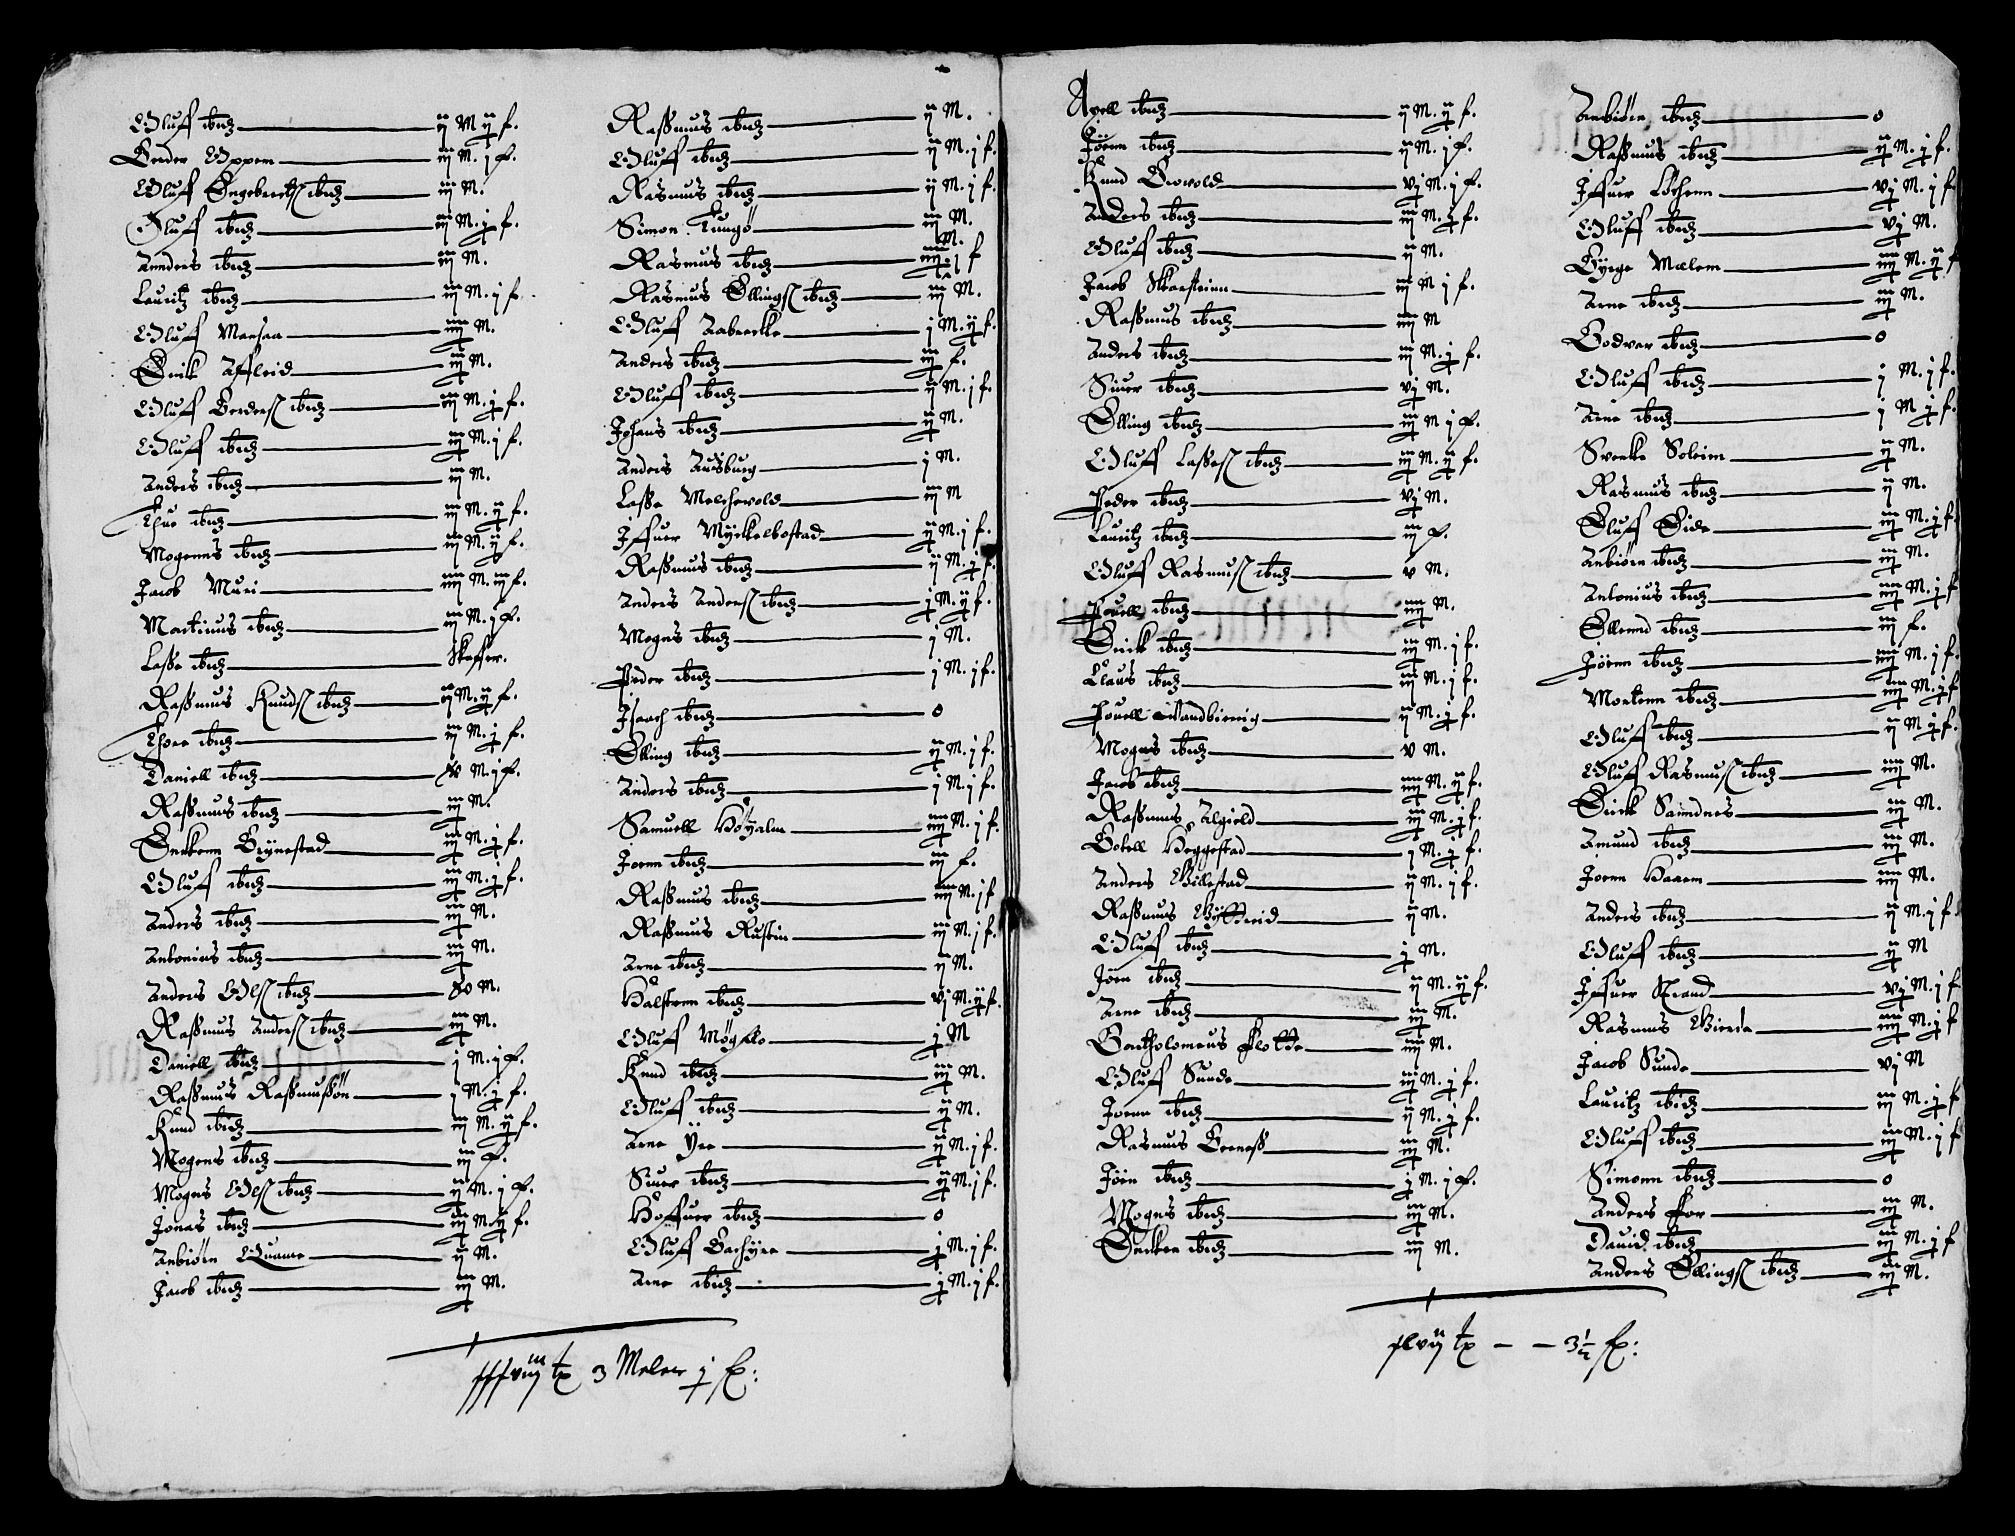 Oluff ibid ij M ij f.
Peder Oppem iij M. j f.
Oluff Engebretß ibid iij M.
Oluff ibid iij M. j f.
Annders ibid iij M.
Lauritz ibid iij M. j f.
Oluff Marsaa iiij M.
Erik Affleid iij M.
Oluff Pedersß ibid iiij M. j f.
Oluff ibid iij M. j f.
Anders ibid iij M.
Thue ibid iij M. ij f.
Mogenns ibid iij M. ij f.
Jacob Muri iiij M. iij f.
Martinus ibid iij M. j f.
Laße ibid Skaffer.
Raßmus Knudß ibid ij M. ij f.
Thore ibid iij M. j f.
Daniell ibid M. j f.
Raßmus ibid iij M.
Enkenn Brynestad iij M. j f.
Oluff ibid iij M. j f.
Anders ibid iij M.
Antonius ibid iij M.
Anders Olß ibid M.
Raßmus Andersß ibid iij M.
Daniell ibid j M. j f.
Raßmus Raßmußøn j M. j f.
Knud ibid iij M. ij f.
Mogens ibid iij f.
Mogns Olß ibid ij M. j f.
Jonas ibid iij M. ij f.
Anbiøn Quame ij M.
Jacob ibid iij M.
Raßmus ibid ij M.
Oluff ibid ij M. j f.
Rasmus ibid ij M. j f.
Simon iij M.
Rasmus ibid iiij M. j f
Rasmus Ellingß ibid iij M.
Oluff Aabrekke j M. ij f.
Anders ibid iij f.
Oluff ibid ij M. j f.
Johans ibid ij M.
Anders Ausburg j M.
Laße Melcheuold iij M
Iffuer Myckelbostad ij M. j f.
Raßmus ibid ij M. j f.
Anders Andersß ibid j M. ij f.
Mogns ibid j M.
Peder ibid j M. j f.
Isaach ibid 0
Elling ibid ij M. j f.
Anders ibid j M. j f.
Samuell Høyalm iiij M. j f.
Joenn ibid iij f.
Raßmus ibid iiij M. j f
Raßmus Rustin iij M. j f.
Arne ibid ij M.
Halstenn ibid vj M. ij f.
Oluff Møgklo j M
Knud ibid iij M.
Oluff ibid ij M.
Arne Yre ij M. j f.
Siuer ibid ij M. j f.
Hoffuer ibid 0
Oluff Bachyre j M. j f.
Arne ibid j M. j f.
3 Meler j f:
Axell ibid ij M. ij f.
Jøenn ibid ij M. j f.
Knud vj M. j f.
Anders ibid iij M. j f.
Oluff ibid ij M.
Jacob Skarsteinn iij M j f.
Raßmus ibid iiij M
Anders ibid iij M. j f.
Siuer ibid vj M.
Elling ibid iij M j f.
Oluff Laßeß ibid iij M. ij f.
Peder ibid vj M.
Lauritz ibid iij f.
Oluff Rasmusß ibid v M.
Pouell ibid iiij M.
Erick ibid iij M. j f.
Claus ibid iij M. j f.
Pouell ij M. j f.
Mogns ibid v M.
Jacob ibid iiij M. ij f.
Raßmus Algield iij M. j f.
Botell Heggestad j M. j f.
Anders Gillestad ij M. j f.
Raßmus ij M.
Oluff ibid j M.
Jøen ibid ij M. ij f.
Arne ibid iij M.
Bartholomeus Flotte iiij M.
Oluff Sunde iij M. j f.
Joenn ibid ij M. j f.
Rasmus iij M.
Jøen ibid j M. j f.
Mogns ibid iij M.
Enken ibid iij M.
Anbiøn ibid 0
Raßmus ibid ij M. j f.
Iffuer vj M. j f
Oluff ibid vj M.
Byrge Mælem iiij M. ij f
Arne ibid iij M.
Godvar ibid 0
Oluff ibid j M. j f.
Arne ibid j M j f.
Sverke Soleim ij M.
Rasmus ibid ij M.
Oluff Eide iij M. j f
Anbiøn ibid iij M.
Antonius ibid iiij M. j f
Ellennd ibid iij f.
Jøenn ibid iiij M. j f.
Mortenn ibid iiij M. j f
Oluff ibid ij M j f.
Oluff Rasmusß ibid iiij M.
Erick Sanndnes iij M.
Amund ibid iij M.
Joenn Haarem iiij M.
Anders ibid ij M. j f
Oluff ibid ij M
Iffuer Strand vj M. j f
Rasmus iiij M. j f
Jacob Sunde vj M
Lauritz ibid iij M. j f
Oluff ibid iij M. j f
Simonn ibid 0
Anders For iij M.
Dauid ibid iij M. j f
Anders Ellingß ibid iij M.
3½ f: